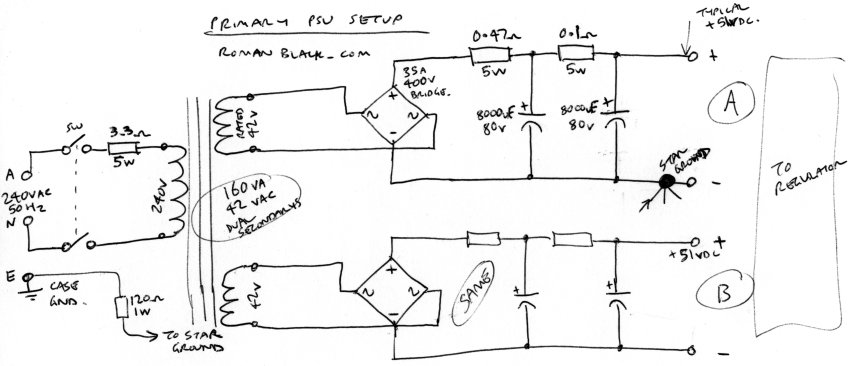 PRIMARY PSU SETUP
ROMAN BLACK.COM
TYPICAL
+51VDC.
0.47Ω
5W
0.1Ω
5W
35A
400V
BRIDGE.
+
~
~
-
RATED
42V
8000uF
80V
+
8000uF
80V
+
+
A
STAR
GROUND
-
TO
REGULATOR
SW
3.3Ω
5W
A
240VAC
50HZ
N
240V
160VA
42VAC
DUAL
SECONDARYS
E
CASE
GND.
120Ω
1W
TO STAR
GROUND
42V
+
~
~
-
SAME
+
+
+
+51VDC
B
-